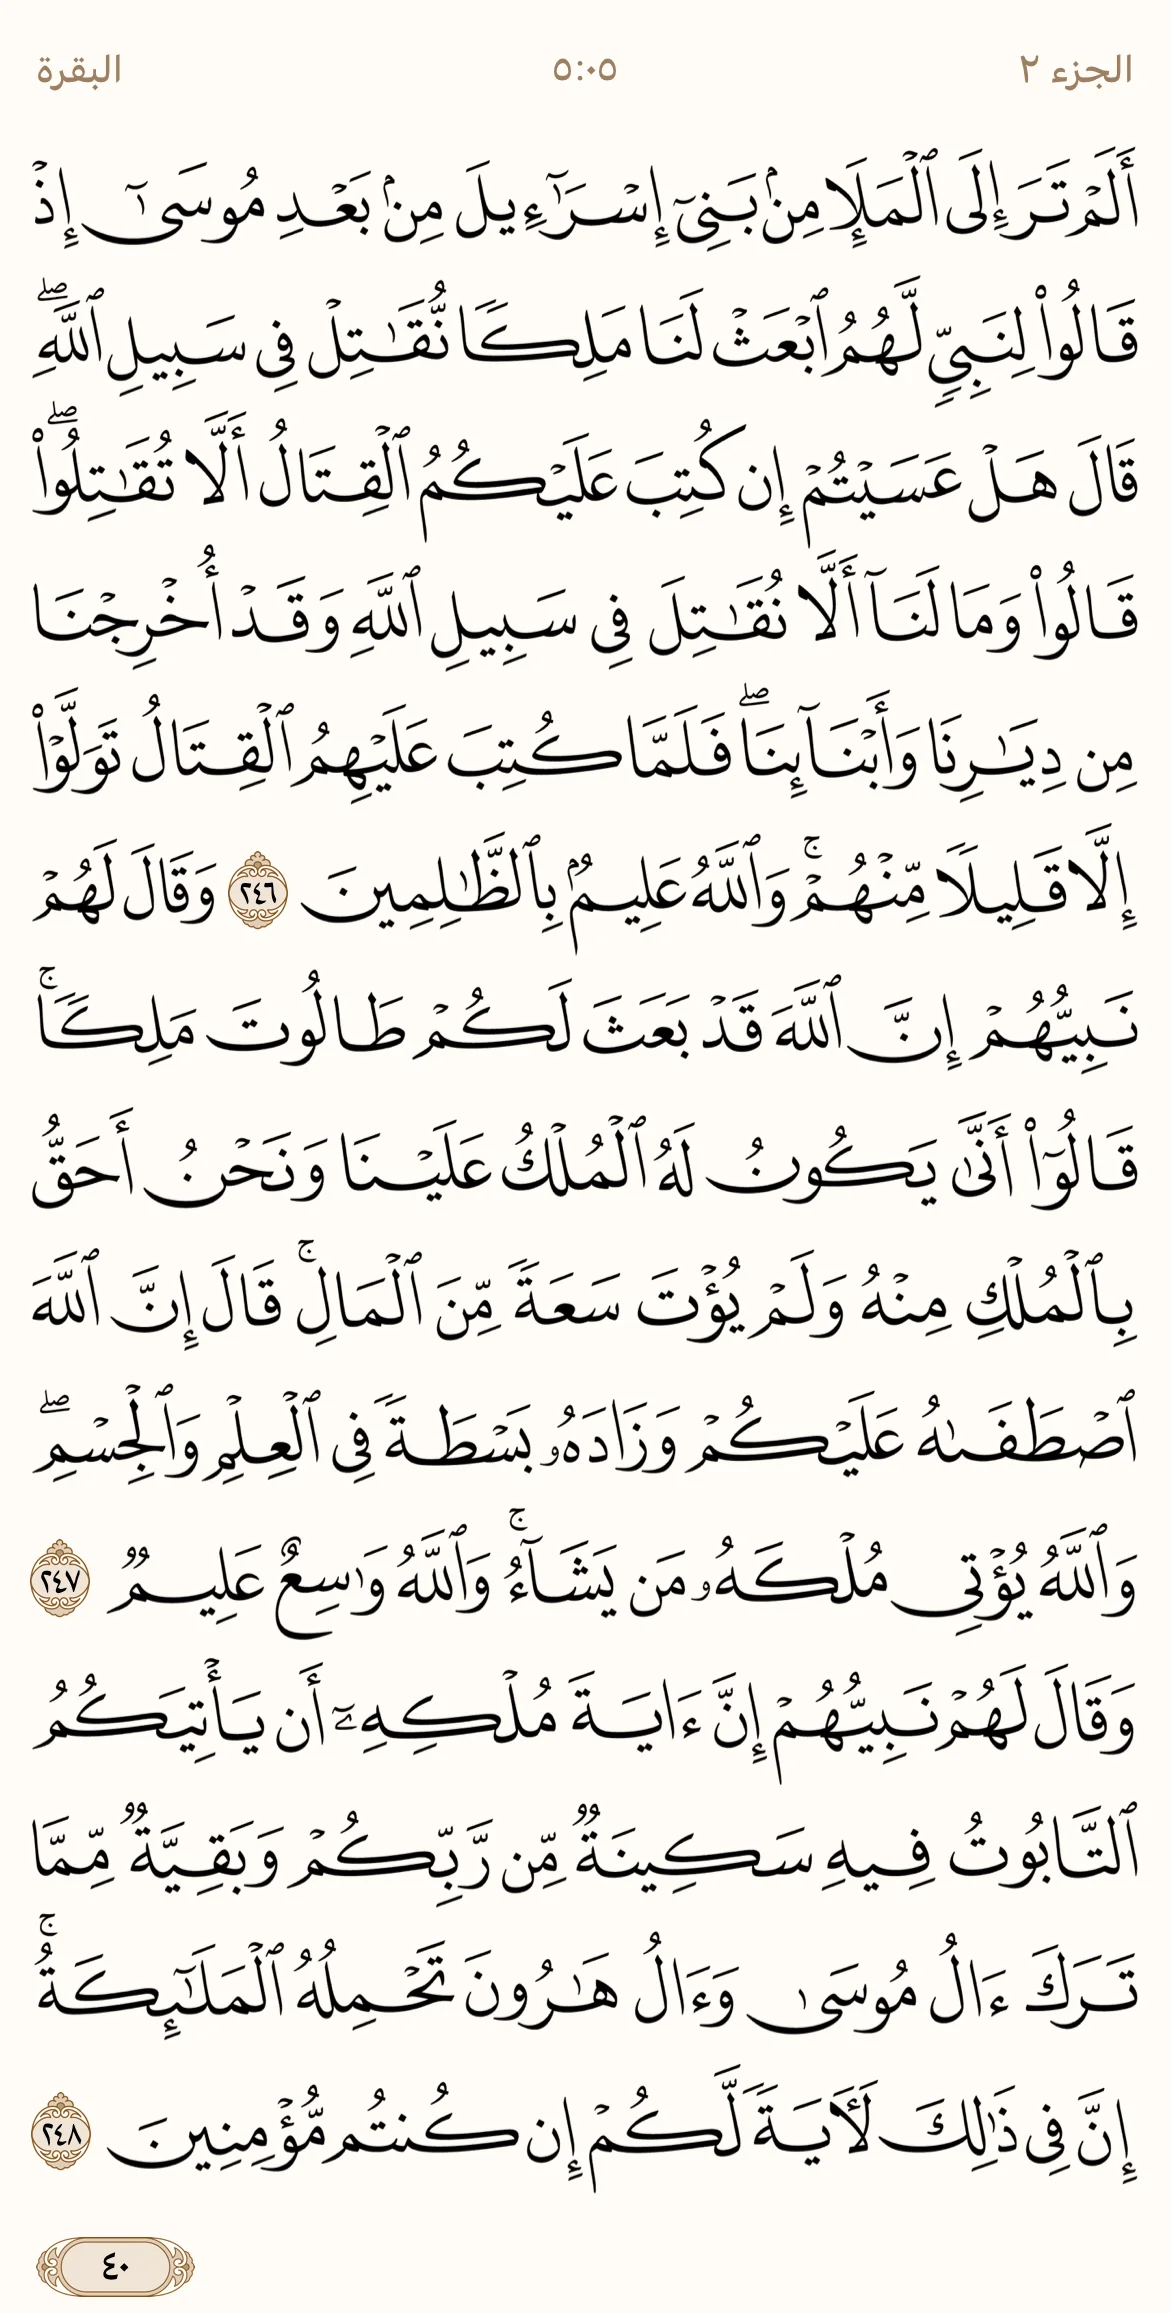 الجزء ٢ ٥:٠٥ البقرة
أَلَمْ تَرَ إِلَى ٱلْمَلَإِ مِنۢ بَنِىٓ إِسْرَٰٓءِيلَ مِنۢ بَعْدِ مُوسَىٰٓ إِذْ
قَالُوا۟ لِنَبِىٍّ لَّهُمُ ٱبْعَثْ لَنَا مَلِكًا نُّقَـٰتِلْ فِى سَبِيلِ ٱللَّهِ ۖ
قَالَ هَلْ عَسَيْتُمْ إِن كُتِبَ عَلَيْكُمُ ٱلْقِتَالُ أَلَّا تُقَـٰتِلُوا۟ ۖ
قَالُوا۟ وَمَا لَنَآ أَلَّا نُقَـٰتِلَ فِى سَبِيلِ ٱللَّهِ وَقَدْ أُخْرِجْنَا
مِن دِيَـٰرِنَا وَأَبْنَآئِنَا ۖ فَلَمَّا كُتِبَ عَلَيْهِمُ ٱلْقِتَالُ تَوَلَّوْا۟
إِلَّا قَلِيلًا مِّنْهُمْ ۚ وَٱللَّهُ عَلِيمٌۢ بِٱلظَّـٰلِمِينَ ٢٤٦ وَقَالَ لَهُمْ
نَبِيُّهُمْ إِنَّ ٱللَّهَ قَدْ بَعَثَ لَكُمْ طَالُوتَ مَلِكًا ۚ
قَالُوٓا۟ أَنَّىٰ يَكُونُ لَهُ ٱلْمُلْكُ عَلَيْنَا وَنَحْنُ أَحَقُّ
بِٱلْمُلْكِ مِنْهُ وَلَمْ يُؤْتَ سَعَةً مِّنَ ٱلْمَالِ ۚ قَالَ إِنَّ ٱللَّهَ
ٱصْطَفَىٰهُ عَلَيْكُمْ وَزَادَهُۥ بَسْطَةً فِى ٱلْعِلْمِ وَٱلْجِسْمِ ۖ
وَٱللَّهُ يُؤْتِى مُلْكَهُۥ مَن يَشَآءُ ۚ وَٱللَّهُ وَٰسِعٌ عَلِيمٌ ٢٤٧
وَقَالَ لَهُمْ نَبِيُّهُمْ إِنَّ ءَايَةَ مُلْكِهِۦٓ أَن يَأْتِيَكُمُ
ٱلتَّابُوتُ فِيهِ سَكِينَةٌ مِّن رَّبِّكُمْ وَبَقِيَّةٌ مِّمَّا
تَرَكَ ءَالُ مُوسَىٰ وَءَالُ هَـٰرُونَ تَحْمِلُهُ ٱلْمَلَـٰٓئِكَةُ ۚ
إِنَّ فِى ذَٰلِكَ لَـَٔايَةً لَّكُمْ إِن كُنتُم مُّؤْمِنِينَ ٢٤٨
٤٠